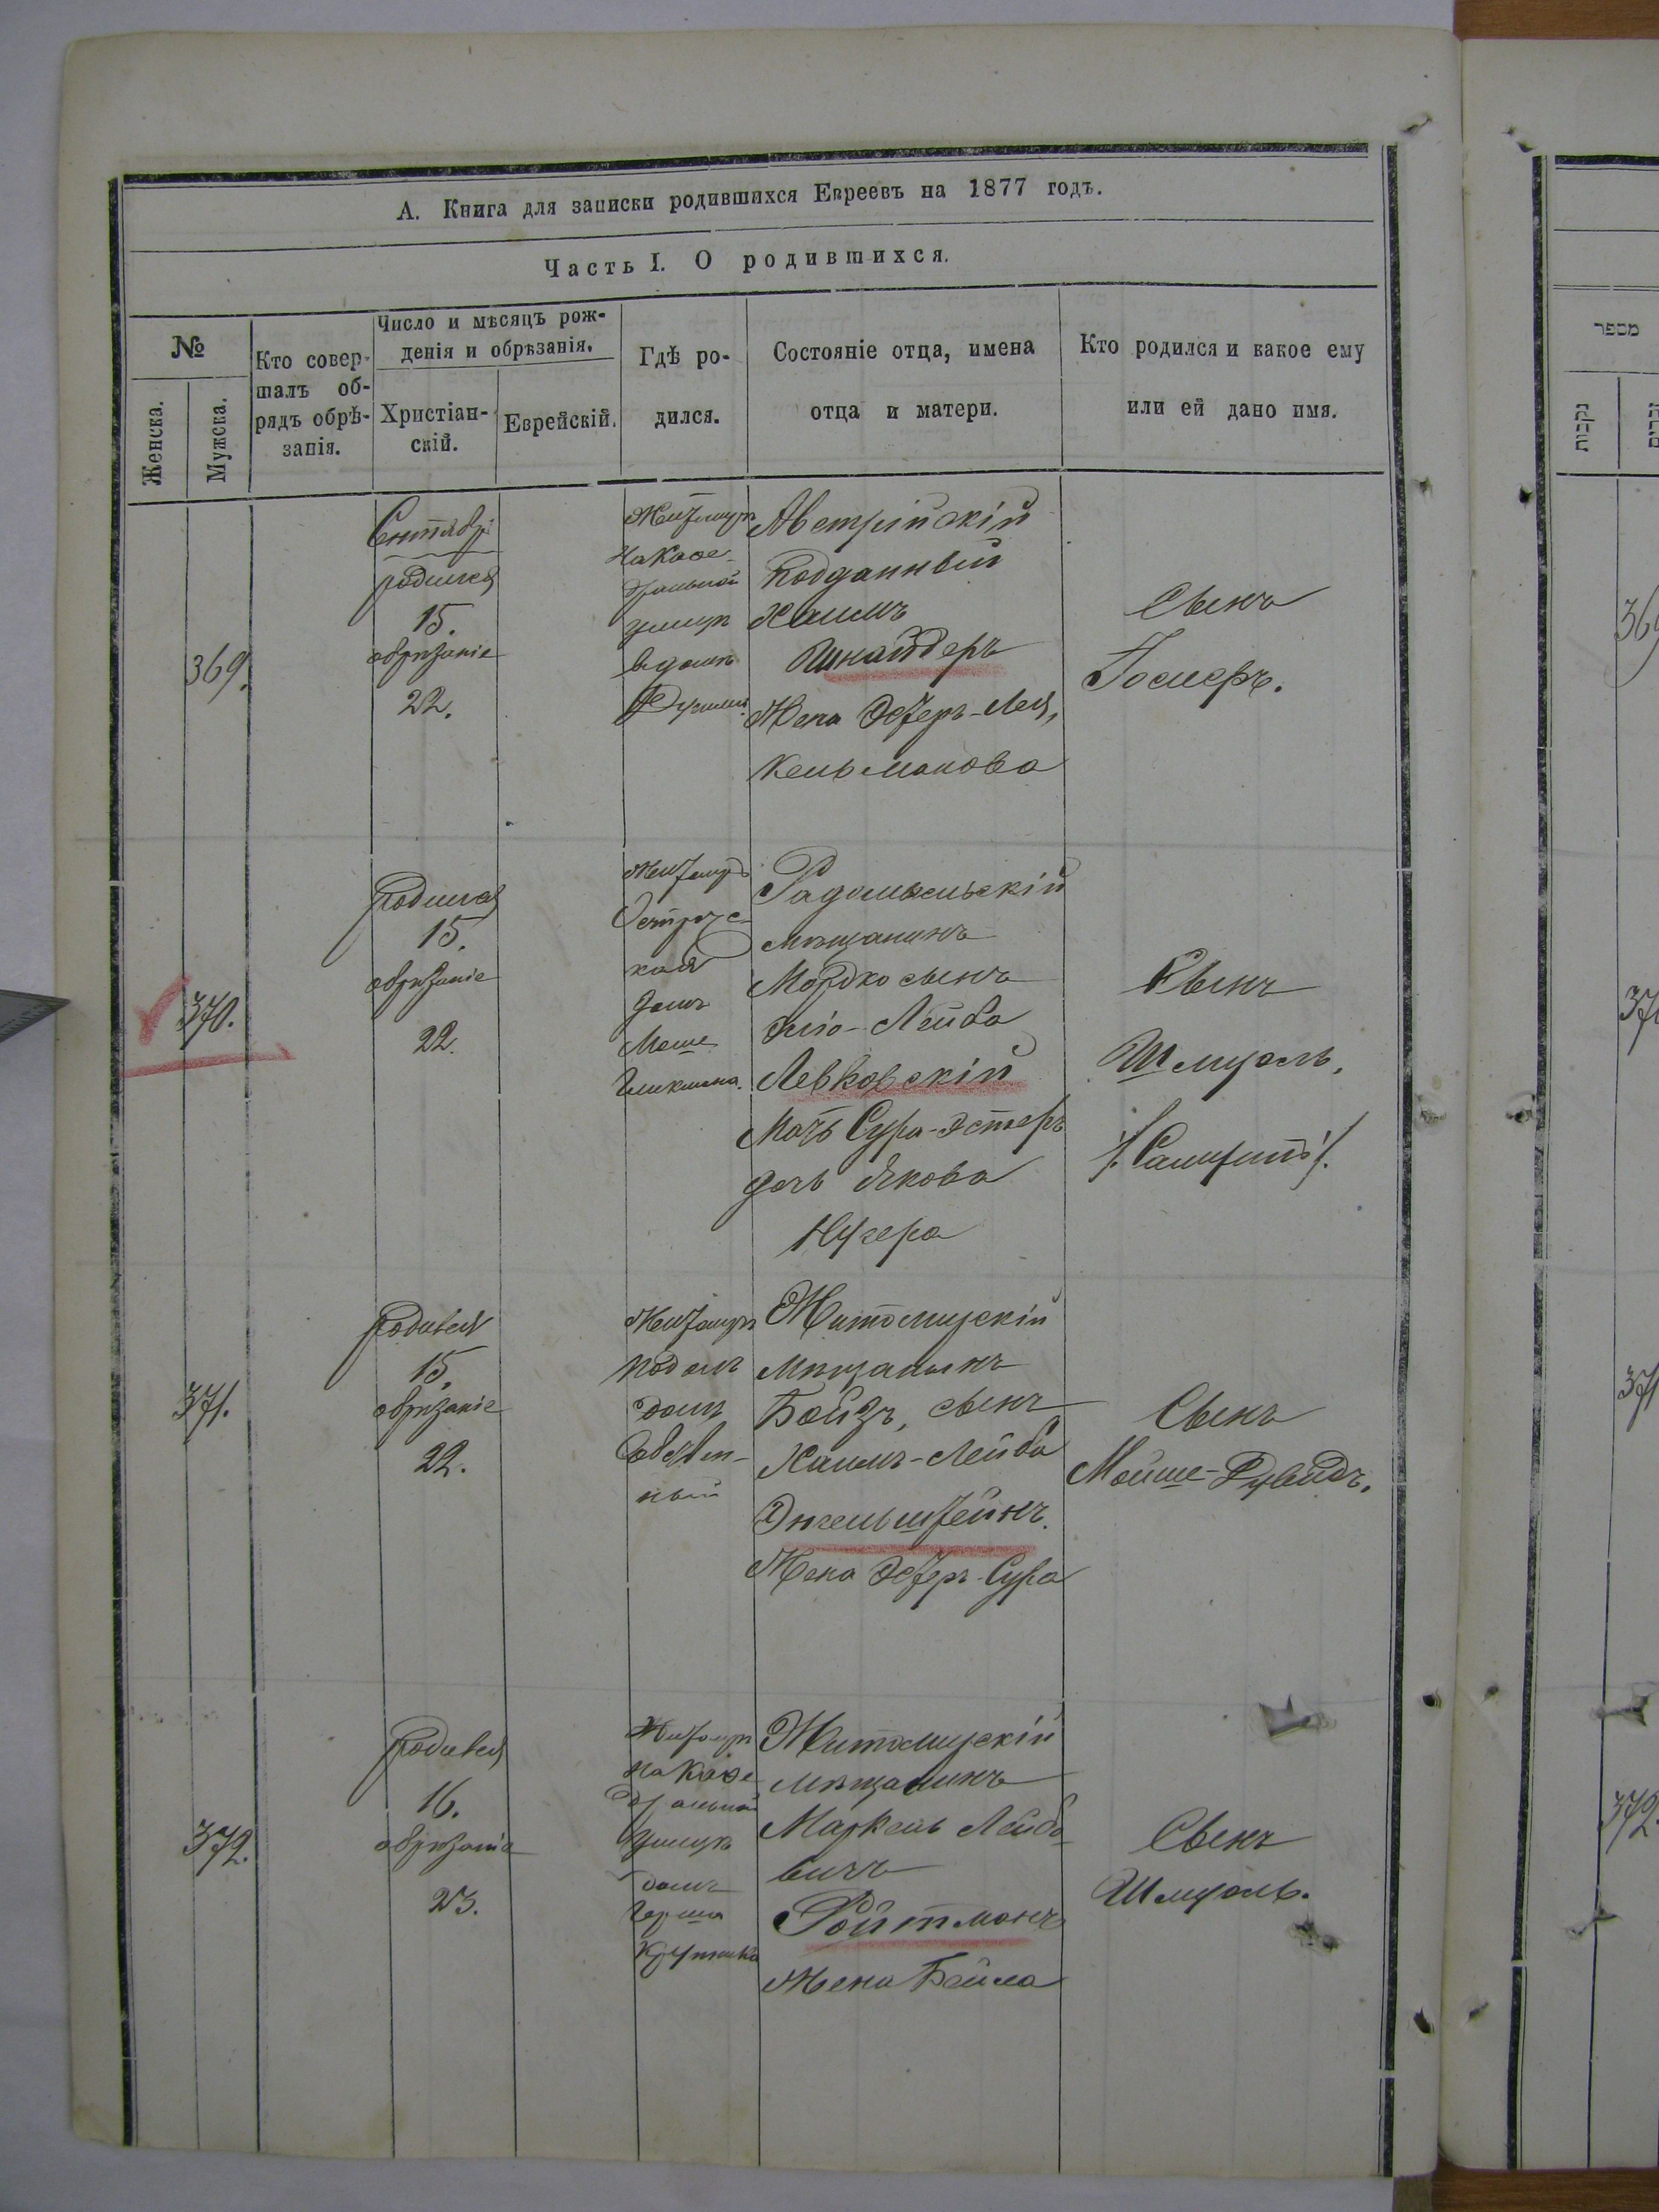 А. Книга для записки родившихся Евреевъ на 1877 годъ.
Часть I. О родившихся.
№
Женска.
Мужска.
Кто совер-
шалъ об-
рядъ обрѣ-
занія.
Число и мѣсяцъ рож-
денія и обрѣзанія.
Христіан-
скій.
Еврейскій.
Гдѣ ро-
дился.
Состояніе отца, имена
отца и матери.
Кто родился и какое ему
или ей дано имя.
369.
Сентябр:
родился
15.
обрѣзаніе
22.
Житомиръ
На Кафе-
дральной
улицѣ
в домѣ
Австрійскій
Подданный
Хаимъ
Шнайдеръ
Жена Эстеръ-Лея,
Кельманова
Сынъ
Госмеръ.
370.
Родился
15.
обрѣзаніе
22.
Житомиръ
Острожс-
кая
домъ
Моше
Радомысльскій
мѣщанинъ
Мордко сынъ
Эліо-Лейба
Левковскій
Мать Сура-Эстеръ
дочь Якова
Сынъ
Шмуель.
371.
Родился
15.
обрѣзаніе
22.
Житомиръ
Подолъ
домъ
Собствен-
ный
Житомирскій
Мѣщанинъ
Бойзъ, сынъ
Хаимъ-Лейба
Энгельштейнъ.
Жена Эстеръ-Сура
Сынъ
Мойше-Дувидъ.
372.
Родился
16.
обрѣзаніе
23.
Житомиръ
На Кафе-
дральной
улицѣ
домъ
Герша
Житомирскій
мѣщанинъ
Маркель Лейбо-
вичъ
Ройтманъ
Жена Бейла
Сынъ
Шмуель.
מספר
נקבות
369
371
372